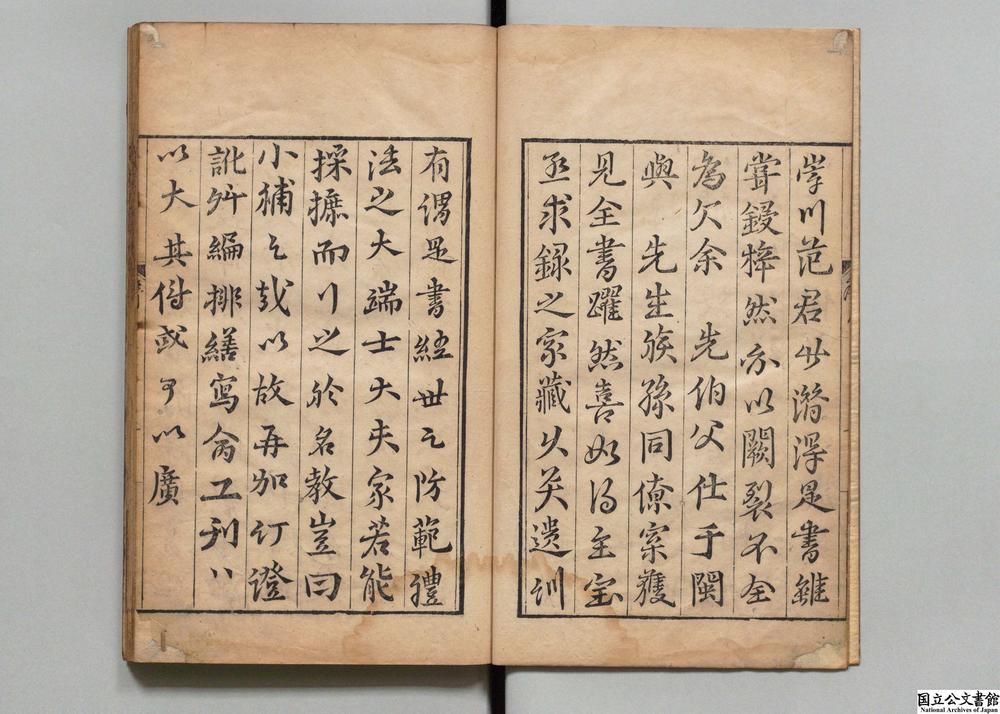 川范君少潛淂是書雖
嘗鋟梓然亦以闕裂不全
為欠余　先伯父仕于閩
與　先生族孫同僚寀獲
見全書躍然喜如得至宝
亟求録之家藏久矣遺訓
有謂是書經世之防範禮
法之大端士大夫家若能
採摭而行之於名教豈曰
小補之哉以故再加訂證
訛舛編排繕寫命工刊
以大其傳或可以廣
国立公文書館
National Archives of Japan